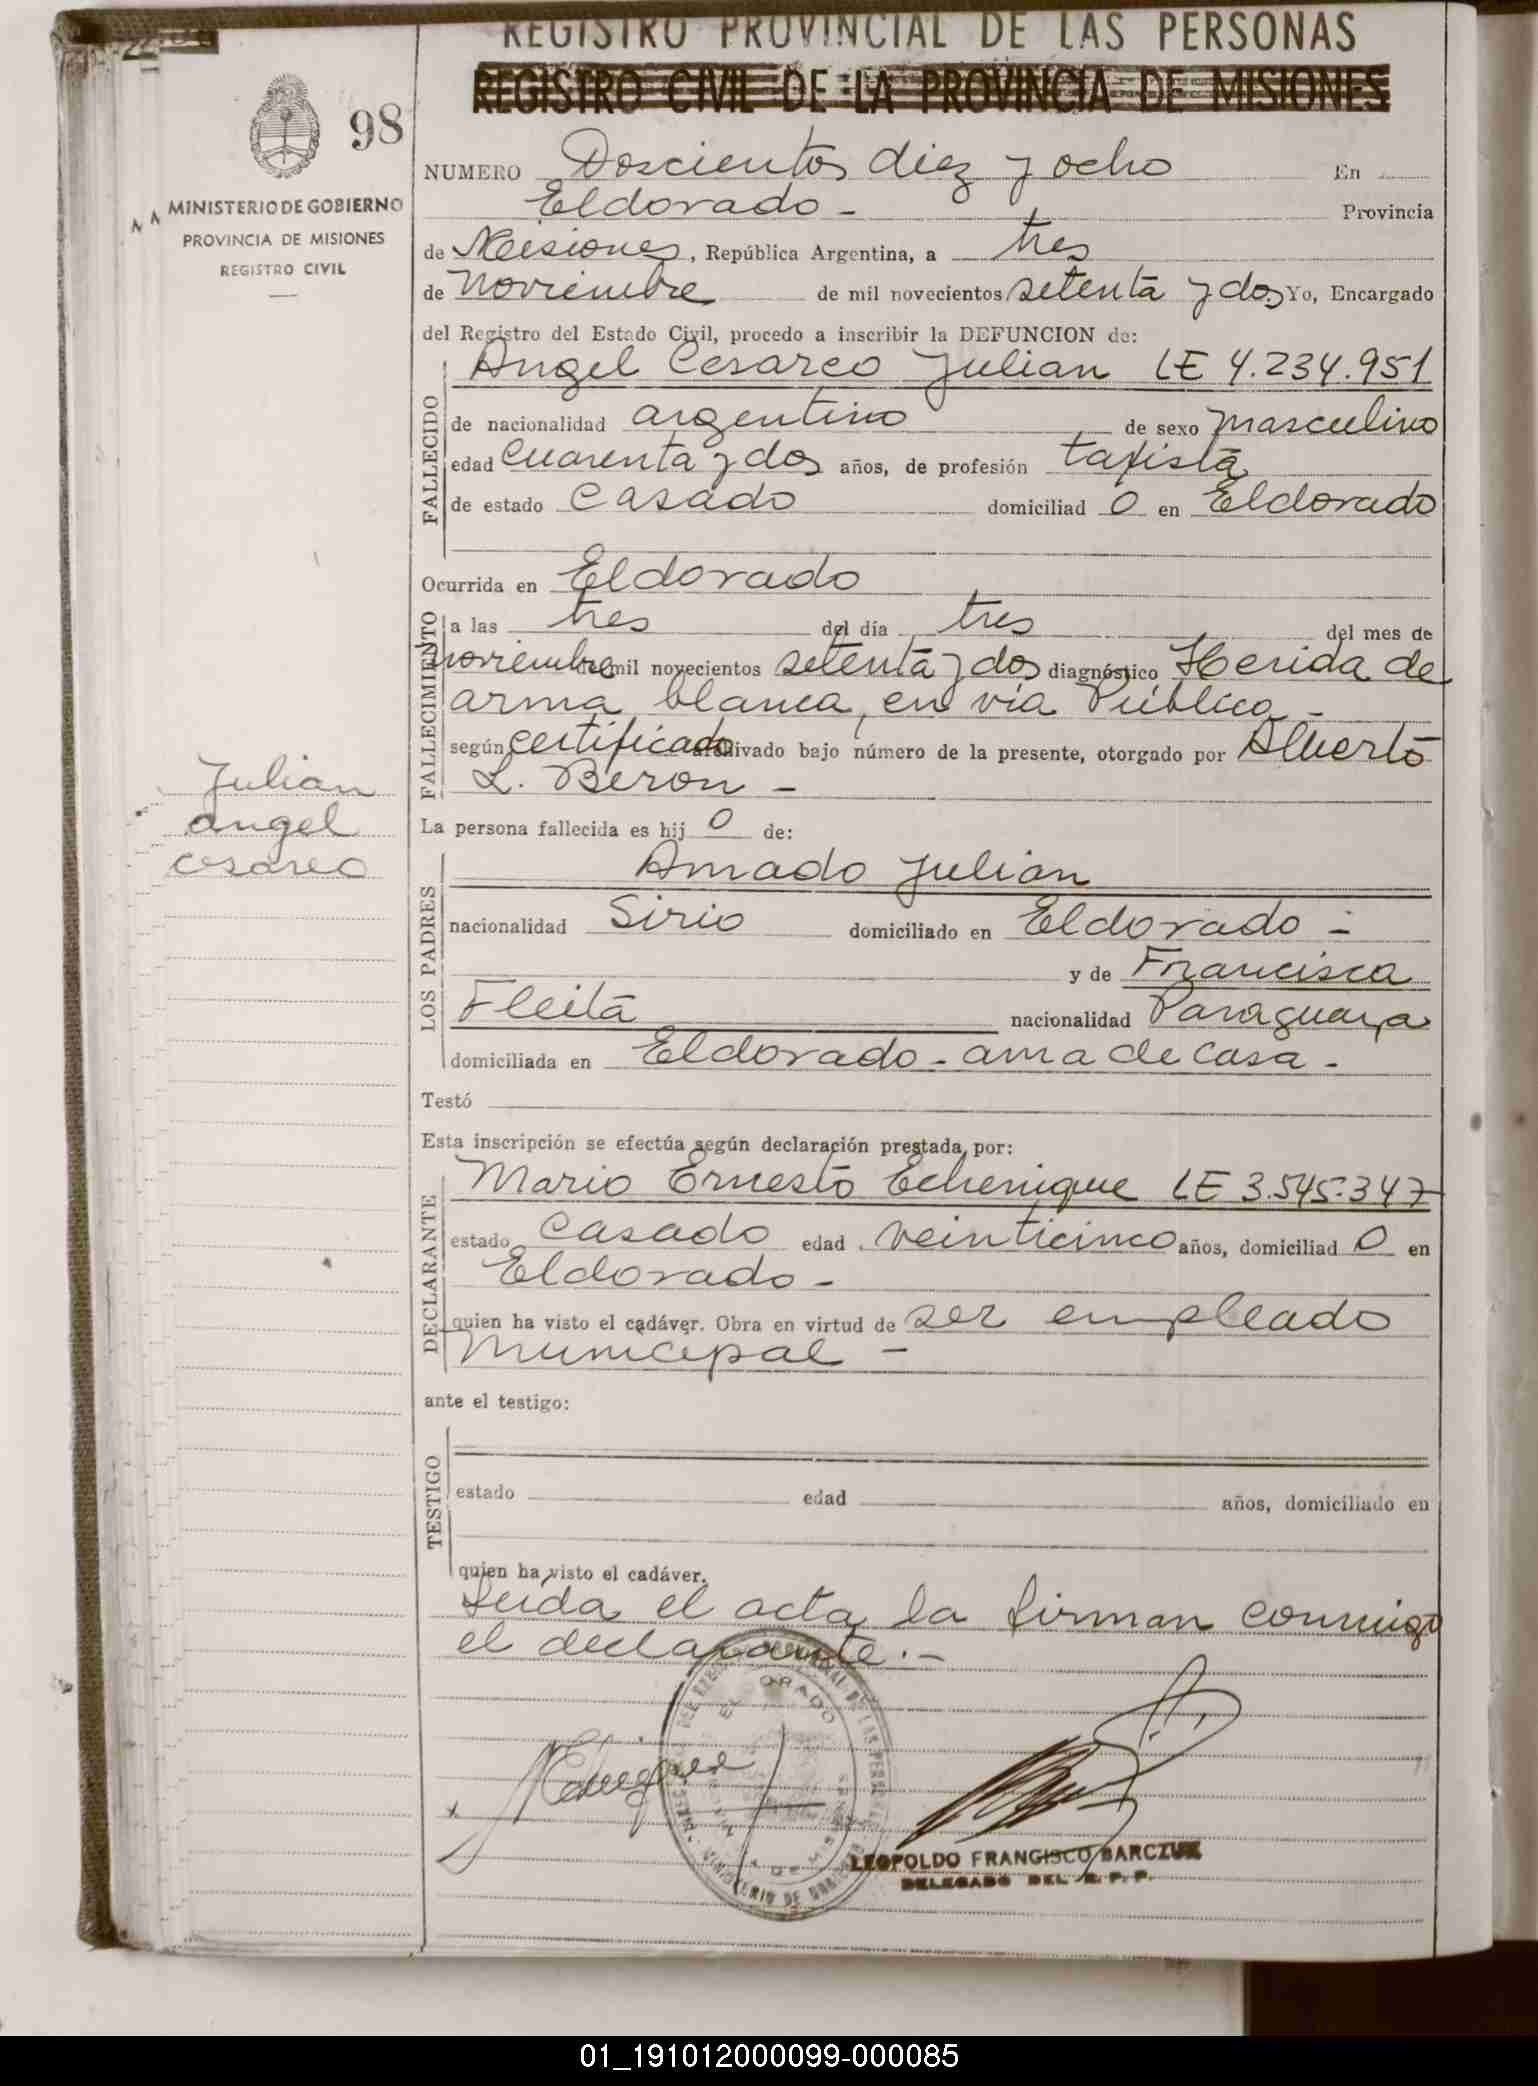 REGISTRO PROVINCIAL DE LAS PERSONAS
REGISTRO CIVIL DE LA PROVINCIA DE MISIONES
98
MINISTERIO DE GOBIERNO
PROVINCIA DE MISIONES
REGISTRO CIVIL
NUMERO Doscientos diez y ocho En
Eldorado - Provincia
de Misiones, República Argentina, a tres
de Noviembre de mil novecientos setenta y dos Yo, Encargado
del Registro del Estado Civil, procedo a inscribir la DEFUNCION de:
FALLECIDO
Angel Cesareo Julian LE 4.234.951
de nacionalidad argentino de sexo masculino
edad cuarenta y dos años, de profesión taxista
de estado casado domiciliad o en Eldorado
Ocurrida en Eldorado
FALLECIMIENTO
a las tres del día tres del mes de
noviembre de mil novecientos setenta y dos diagnóstico Herida de
arma blanca, en vía Pública -
según certificado archivado bajo número de la presente, otorgado por Alberto
L. Beron -
Julian
angel
cesareo
La persona fallecida es hij o de:
LOS PADRES
Amado Julian
nacionalidad Sirio domiciliado en Eldorado -
y de Francisca
Fleita nacionalidad Paraguaya
domiciliada en Eldorado - ama de casa -
Testó
Esta inscripción se efectúa según declaración prestada por:
DECLARANTE
Mario Ernesto Echenique LE 3.545.347
estado casado edad veinticinco años, domiciliad o en
Eldorado -
quien ha visto el cadáver. Obra en virtud de ser empleado
Municipal -
ante el testigo:
TESTIGO
estado edad años, domiciliado en
quien ha visto el cadáver.
Leida el acta, la firman conmigo
el declarante. -
LEOPOLDO FRANCISCO BARCZUK
DELEGADO DEL R. P. P.
01_191012000099-000085